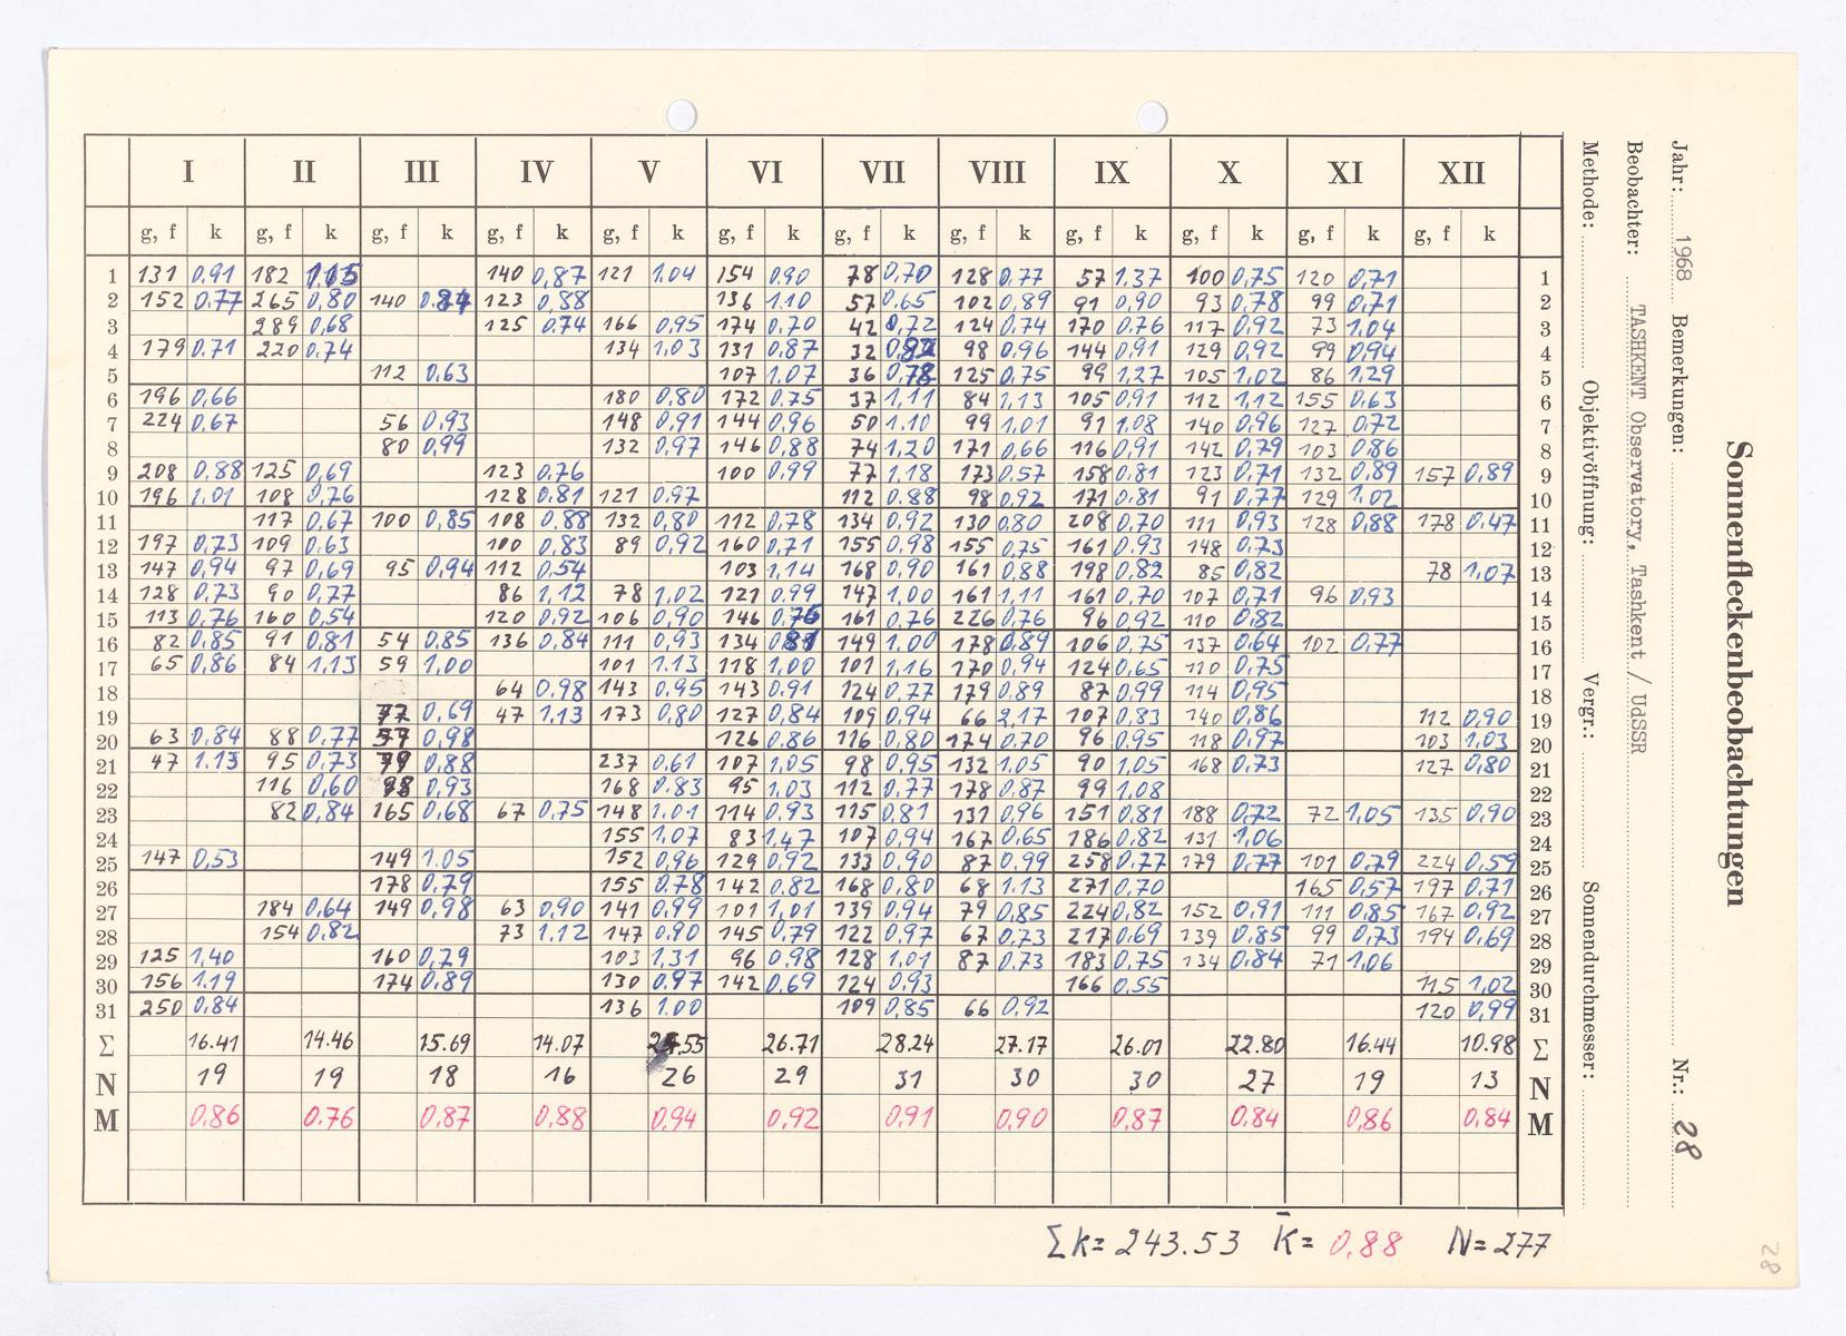 I II III IV V VI VII VIII IX X XI XII
g, f k g, f k g, f k g, f k g, f k g, f k g, f k g, f k g, f k g, f k g, f k g, f k
1 131 0,91 182 1,15 140 0,87 121 1.04 154 0.90 78 0,70 128 0.77 57 1.37 100 0,75 120 0,71 1
2 152 0.77 265 0,80 140 0.84 123 0,88 136 1.10 57 0.65 102 0,89 91 0,90 93 0,78 99 0,71 2
3 289 0,68 125 0.74 166 0,95 174 0,70 42 0,72 124 0,74 170 0.76 117 0,92 73 1.04 3
4 179 0.71 220 0,74 134 1,03 131 0,87 32 98 0.96 144 0.91 129 0,92 99 0,94 4
5 112 0,63 107 1.07 36 0,78 125 0.75 99 1,27 105 1,02 86 1,29 5
6 196 0,66 180 0,80 172 0.75 37 1,11 84 1,13 105 0.91 112 1,12 155 0,63 6
7 224 0,67 56 0,93 148 0,91 144 0,96 50 1.10 99 1.01 91 1.08 140 0,96 127 0,72 7
8 80 0,99 132 0,97 146 0.88 74 1,20 171 0,66 116 0.91 142 0,79 103 0,86 8
9 208 0.88 125 0,69 123 0,76 100 0,99 77 1.18 173 0.57 158 0.81 123 0,71 132 0,89 157 0,89 9
10 196 1,01 108 0,76 128 0.81 121 0.97 112 0.88 98 0,92 171 0.81 91 0,77 129 1.02 10
11 117 0,67 100 0,85 108 0.88 132 0,80 112 0,78 134 0,92 130 0.80 208 0,70 111 0,93 128 0,88 178 0.47 11
12 197 0,73 109 0.63 100 0,83 89 0,92 160 0,71 155 0,98 155 0,75 161 0.93 148 0,73 12
13 147 0,94 97 0,69 95 0,94 112 0,54 103 1,14 168 0,90 161 0,88 198 0,82 85 0,82 78 1,07 13
14 128 0,73 90 0,77 86 1,12 78 1,02 121 0,99 147 1,00 161 1,11 161 0,70 107 0,71 96 0,93 14
15 113 0,76 160 0,54 120 0,92 106 0,90 146 0,76 161 0,76 226 0,76 96 0.92 110 0.82 15
16 82 0,85 91 0,81 54 0,85 136 0,84 111 0,93 134 149 1.00 178 0.89 106 0.75 137 0,64 102 0,77 16
17 65 0,86 84 1.13 59 1,00 101 1.13 118 1,00 101 1,16 170 0,94 124 0.65 110 0,75 17
18 64 0,98 143 0.95 143 0.91 124 0.77 179 0,89 87 0,99 114 0,95 18
19 77 0,69 47 1,13 173 0,80 127 0,84 109 0.94 66 2,17 107 0,83 140 0,86 112 0,90 19
20 63 0,84 88 0.77 0,98 126 0.86 116 0,80 174 0.70 96 0.95 118 0,97 103 1,03 20
21 47 1.13 95 0,73 0.88 237 0,61 107 1,05 98 0.95 132 1.05 90 1,05 168 0,73 127 0,80 21
22 116 0,60 98 0,93 168 0.83 95 1,03 112 0,77 178 0.87 99 1.08 22
23 82 0,84 165 0.68 67 0,75 148 1.01 114 0.93 115 0,81 131 0,96 151 0,81 188 0,72 72 1.05 135 0,90 23
24 155 1,07 83 1,47 107 0,94 167 0.65 186 0,82 131 1,06 24
25 147 0,53 149 1.05 152 0,96 129 0,92 133 0,90 87 0,99 258 0.77 179 0,77 101 0,79 224 0,59 25
26 178 0,79 155 0.78 142 0,82 168 0,80 68 1.13 271 0,70 165 0,57 197 0.71 26
27 184 0,64 149 0,98 63 0,90 141 0,99 101 1,01 139 0.94 79 0,85 224 0,82 152 0,91 111 0,85 167 0,92 27
28 154 0.82 73 1.12 147 0.90 145 0,79 122 0,97 67 0,73 217 0.69 139 0,85 99 0,73 194 0,69 28
29 125 1,40 160 0,79 103 1,31 96 0,98 128 1.01 87 0.73 183 0.75 134 0,84 71 1.06 29
30 156 1.19 174 0,89 130 0.97 142 0,69 124 0,93 166 0,55 115 1,02 30
31 250 0,84 136 1.00 109 0,85 66 0,92 120 0,99 31
Σ 16.41 14.46 15.69 14.07 26.71 28.24 27.17 26.01 22.80 16.44 10.98 Σ
N 19 19 18 16 26 29 31 30 30 27 19 13 N
M 0,86 0.76 0,87 0,88 0,94 0,92 0,91 0,90 0,87 0,84 0,86 0,84 M
Σk= 243.53 k̄= 0,88 N=277
Sonnenfleckenbeobachtungen
Jahr: 1968 Bemerkungen: Nr.: 28
Beobachter: TASHKENT Observatory, Tashkent / UdSSR
Methode: Objektivöffnung: Vergr.: Sonnendurchmesser:
28